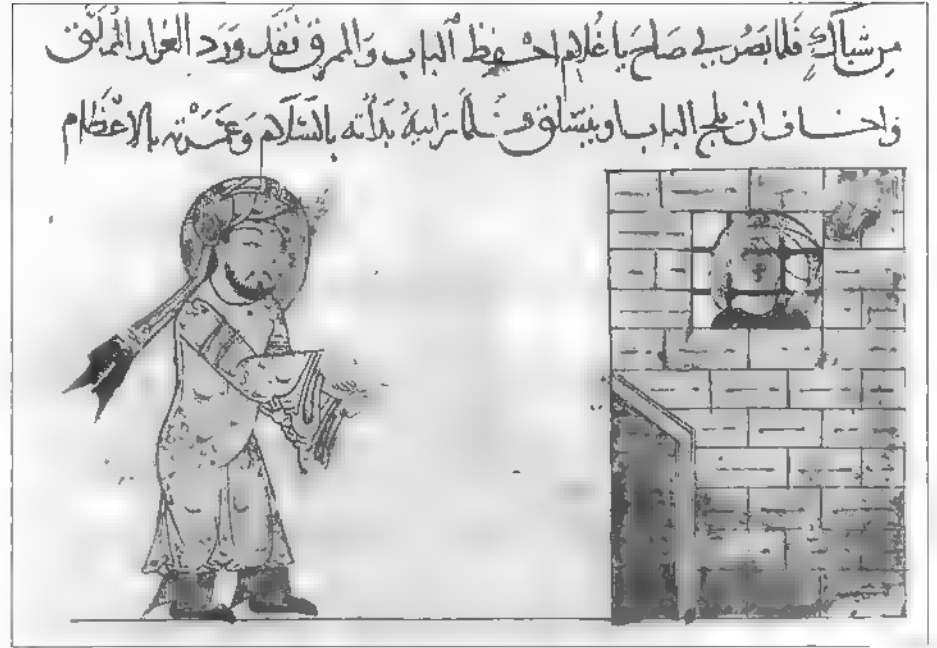 من شباك فلما بصر بي صاح يا غلام احفظ الباب والمرق فقد ورد
واخاف ان يلج الباب ويتسلق فلما رايته بدأته بالسلام وعمرته بالاعظام